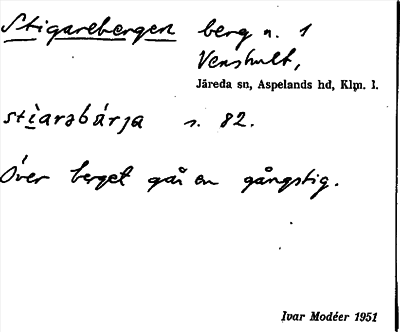 Stigarebergen berg n. 1
Venshult,
Järeda sn, Aspelands hd, Klm. l.
stìarəbárja s. 82.
Över berget går en gångstig.
Ivar Modéer 1951